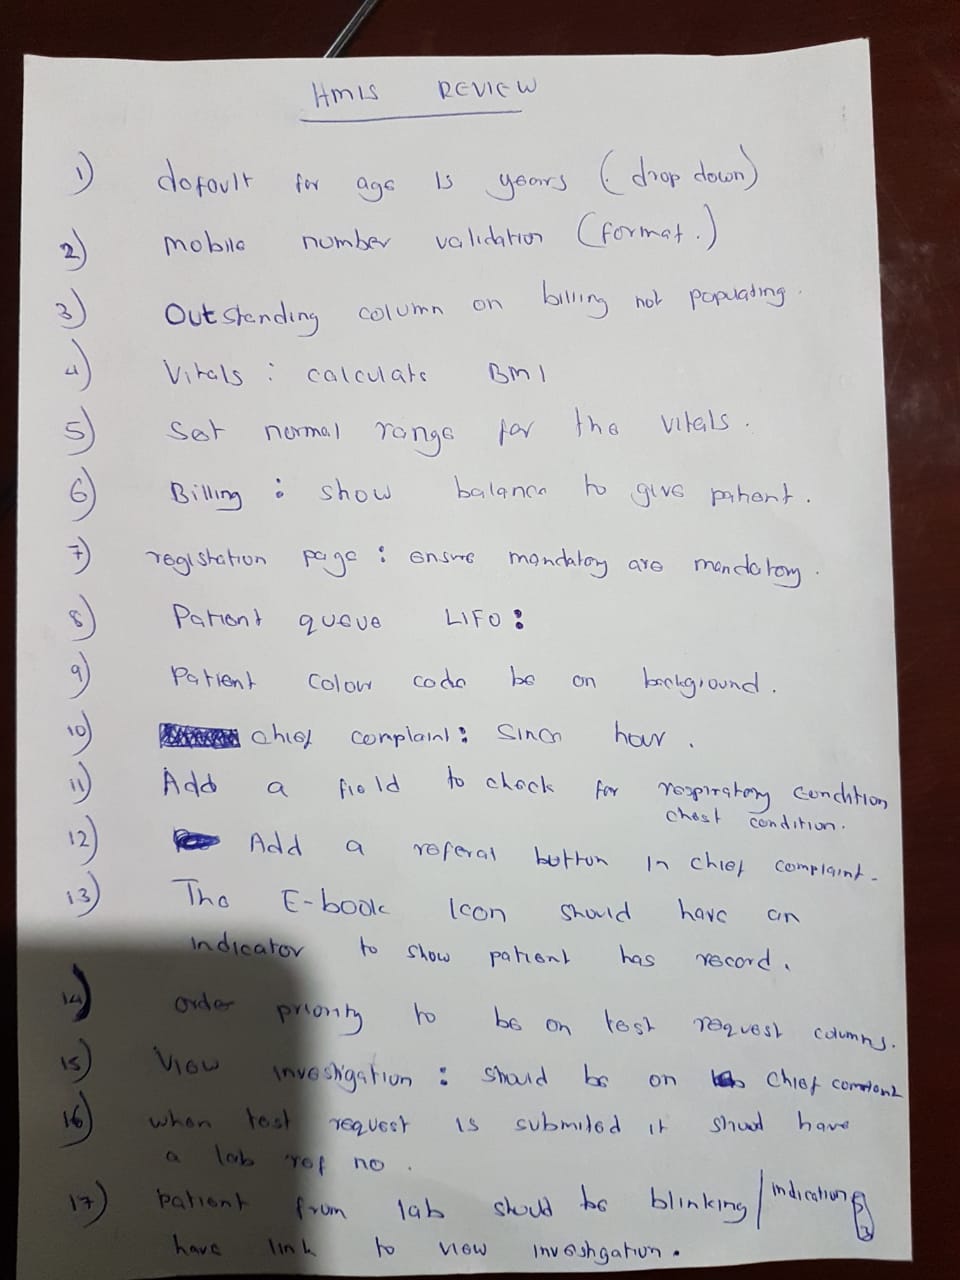 HMIS REVIEW
1) default for age is years (drop down)
2) mobile number validation (format.)
3) Outstanding column on billing not populating.
4) Vitals : calculate BMI
5) Set normal range for the vitals.
6) Billing : show balance to give patient.
7) registration page : ensure mandatory are mandatory.
8) Patient queue LIFO :
9) Patient colour code be on background.
10) chief complaint : Since hour.
11) Add a field to check for respiratory condition
chest condition.
12) Add a referal button in chief complaint.
13) The E-book Icon should have an
indicator to show patient has record.
14) order priority to be on test request columns.
15) View investigation : should be on chief
16) when test request is submited it shoud have
a lab ref no.
17) patient from lab should be blinking / indication
have link to view investigation.